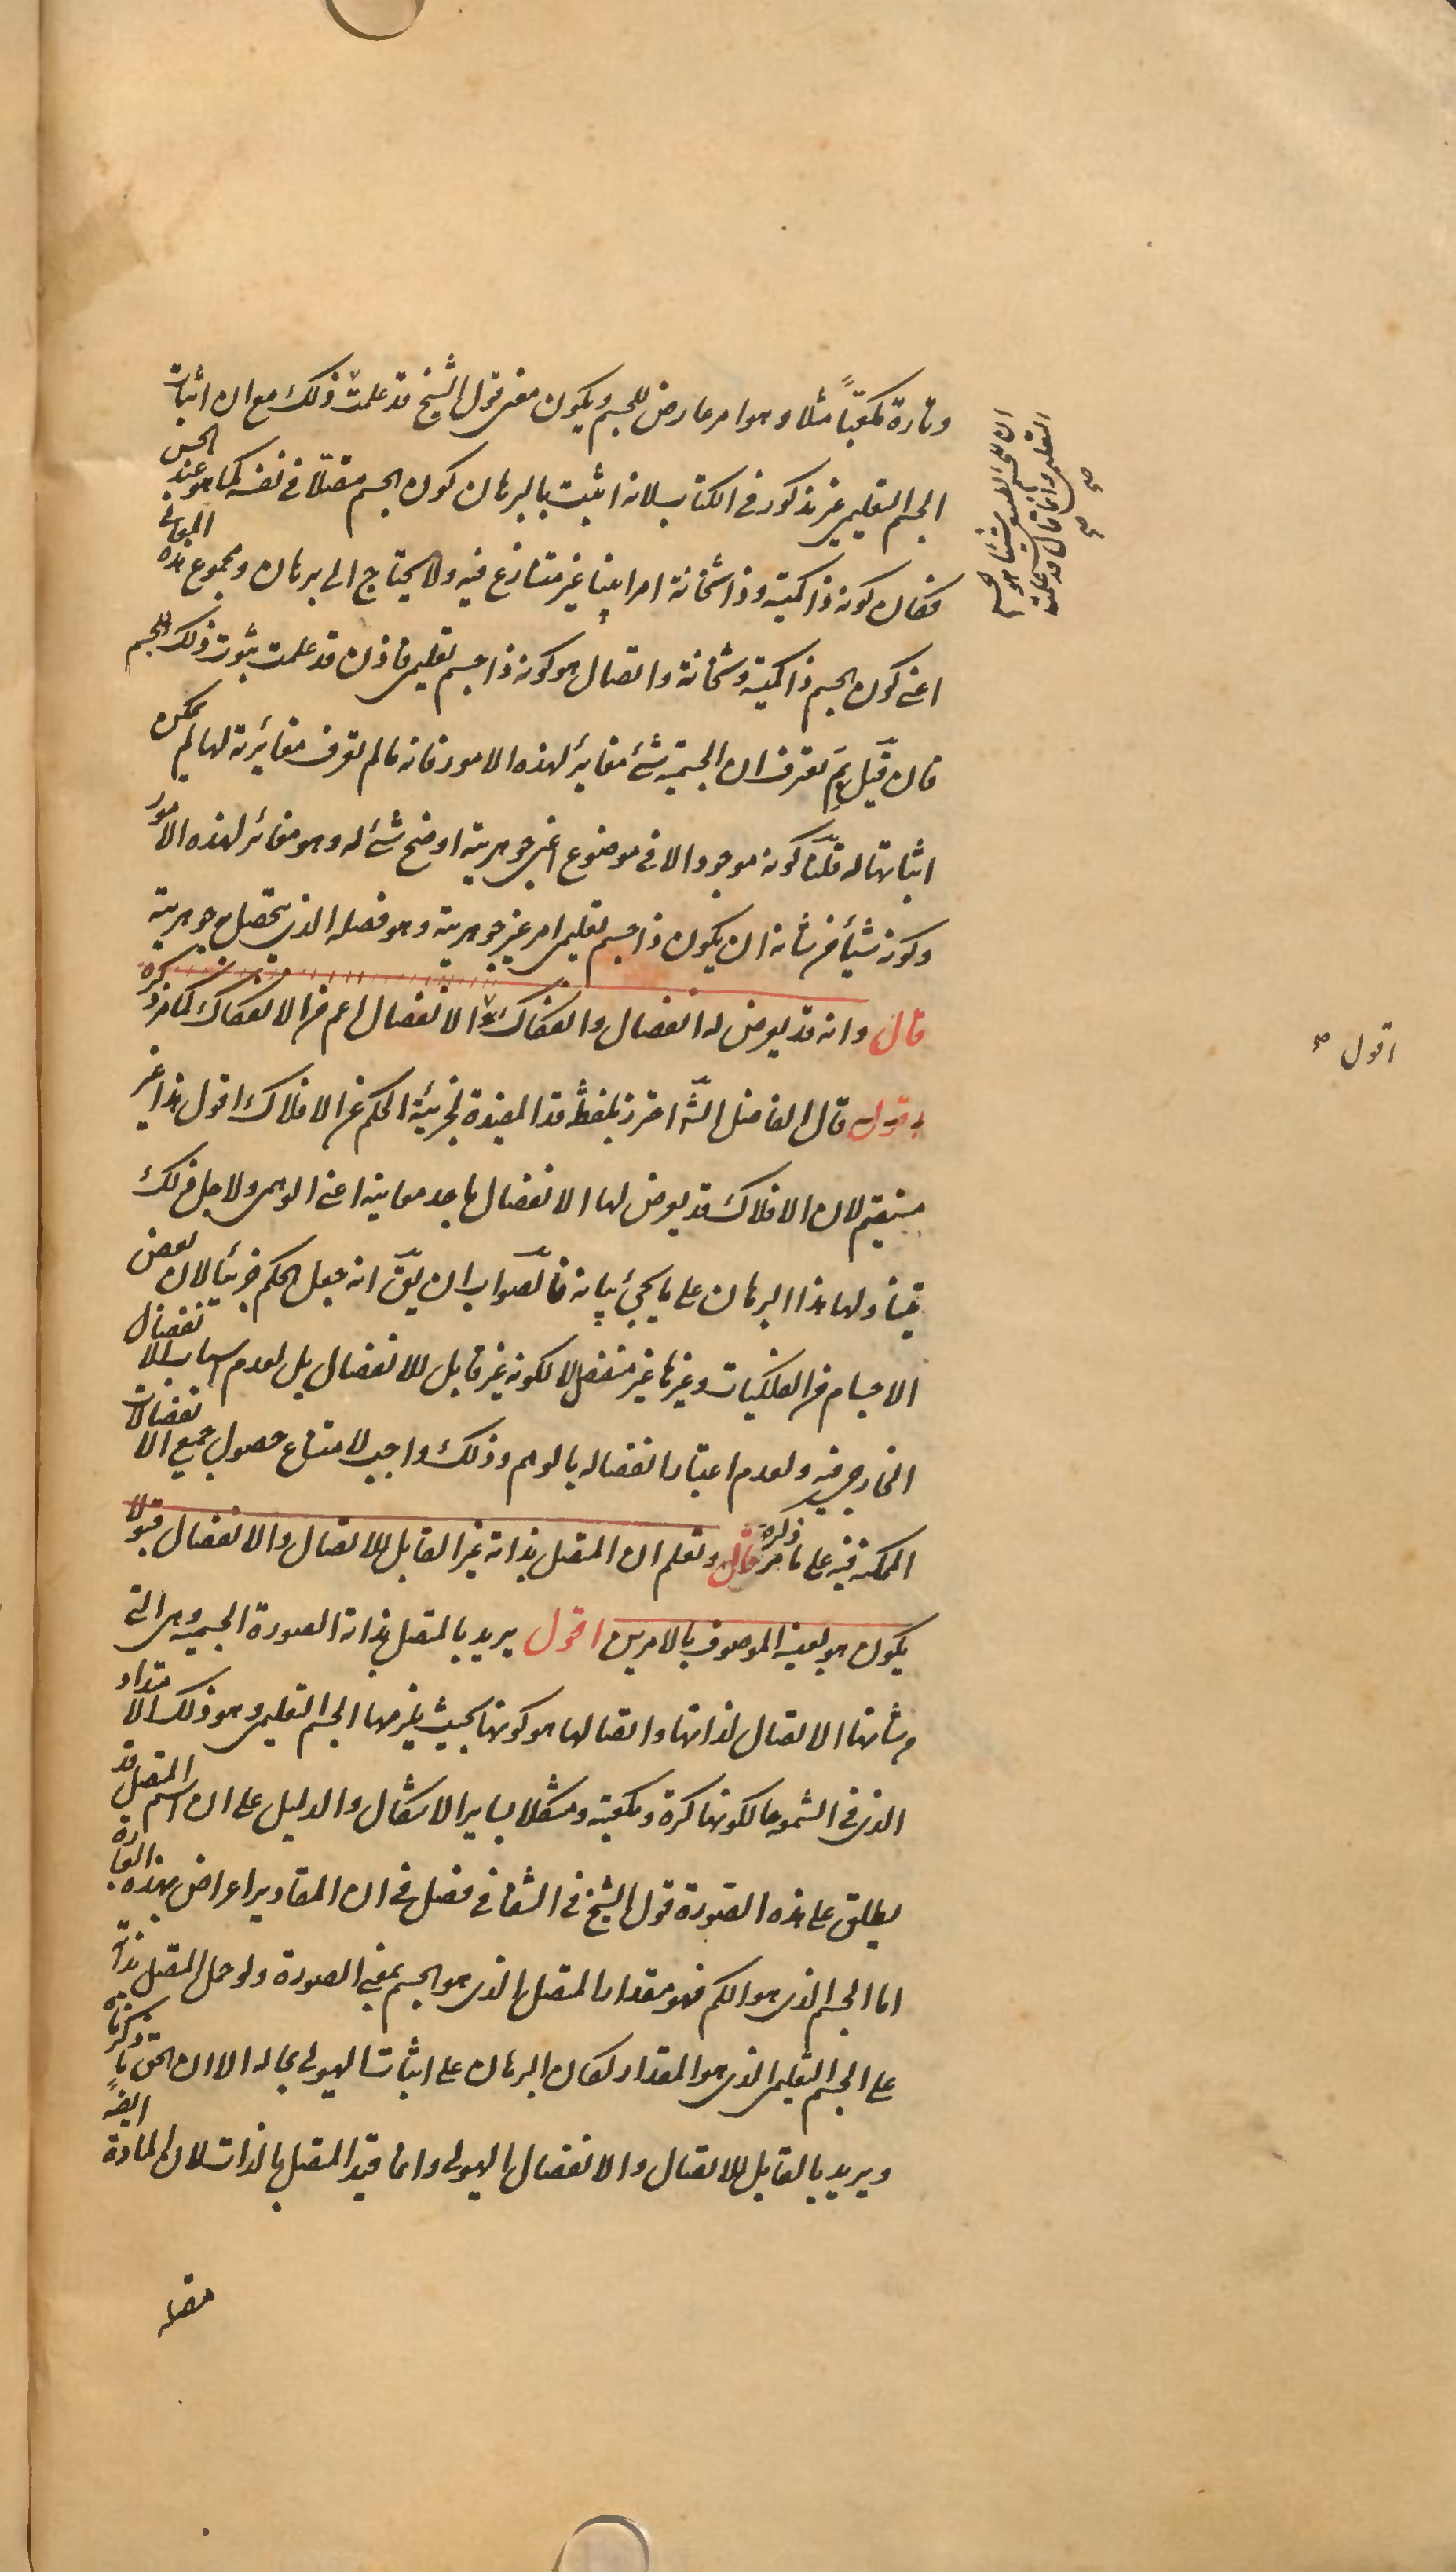 وتارة مكعبًا مثلا وهو امر عارض للجسم ويكون معنى قول الشيخ قد علمت ذلك مع ان اثبات
الجسم التعليمى غير مذكور فى الكتاب لانه اثبت بالبرهان كون الجسم متصلا فى نفسه كما هو عند الحس
فكان كونه ذا كمية وذا ثخانة امرا بينا غير متنازع فيه ولا يحتاج الى برهان ومجموع هذه المعانى
اعنى كون الجسم ذا كمية وثخانة واتصال هو كونه ذا جسم تعليمى فاذن قد علمت ثبوت ذلك للجسم
فان قيل لم نعرف ان الجسمية شئ مغاير لهذه الامور فانه ما لم تعرف مغايرته لها لم يمكن
اثباتها له قلنا كونه موجودا لا فى موضوع اعنى جوهريته اوضح شئ له وهو مغائر لهذه الامور
وكونه شيئا من شانه ان يكون ذا جسم تعليمى امر غير جوهريته وهو فصله الذى يتحصل به جوهريته
قال وانه قد يعرض له انفصال وانفكاك والانفصال اعم من الانفكاك كما مر ذكره
قوله قال الفاضل الشه احترز بلفظة قد المفيدة لجزئية الحكم عن الافلاك اقول هذا غير
مستقيم لان الافلاك قد يعرض لها الانفصال باحد معانيه اعنى الوهمى ولاجل ذلك
يتناولها هذا البرهان على ما يجئ بيانه فالصواب ان يق انه جعل الحكم جزئيا لان بعض
الاجسام من الفلكيات وغيرها غير منفصل لا لكونه غير قابل للانفصال بل لعدم اسباب الانفصال
الخارجى فيه ولعدم اعتبار انفصاله بالوهم وذلك واجب لامتناع حصول جميع الانفصالات
الممكنة فيه على ما مر ذكره قال وتعلم ان المتصل بذاته غير القابل للاتصال والانفصال قبولا
يكون هو بعينه الموصوف بالامرين اقول يريد بالمتصل بذاته الصورة الجسمية وهى التى
من شانها الاتصال لذاتها واتصالها هو كونها بحيث يلزمها الجسم التعليمى وهو ذلك الامتداد
الذى فى الشمعة حال كونها كرة ومكعبة ومشكلا بساير الاشكال والدليل على ان اسم المتصل قد
يطلق على هذه الصورة قول الشيخ فى الشفا فى فصل فى ان المقادير اعراض بهذه العبارة
اما الجسم الذى هو الكم فهو مقدار المتصل الذى هو الجسم بمعنى الصورة ولو حمل المتصل بذاته
على الجسم التعليمى الذى هو المقدار لكان البرهان على اثبات الهيولى بحاله الا ان الحق ما ذكرناه
ويريد بالقابل للاتصال والانفصال الهيولى وانما قيد المتصل بالذات لان المادة ايضً
متصلة
ان للجسم الطبيعى شيئا هو الجسم
التعليمى وانما قال قد علمت
صح صح
اقول صح